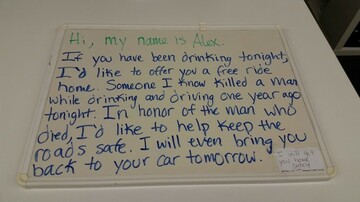 Hi, my name is Alex.
If you have been drinking tonight,
I'd like to offer you a free ride
home. Someone I know killed a man
while drinking and driving one year ago
tonight. In honor of the man who
died, I'd like to help keep the
roads safe. I will even bring you
back to your car tomorrow.
I will get
you home
safely